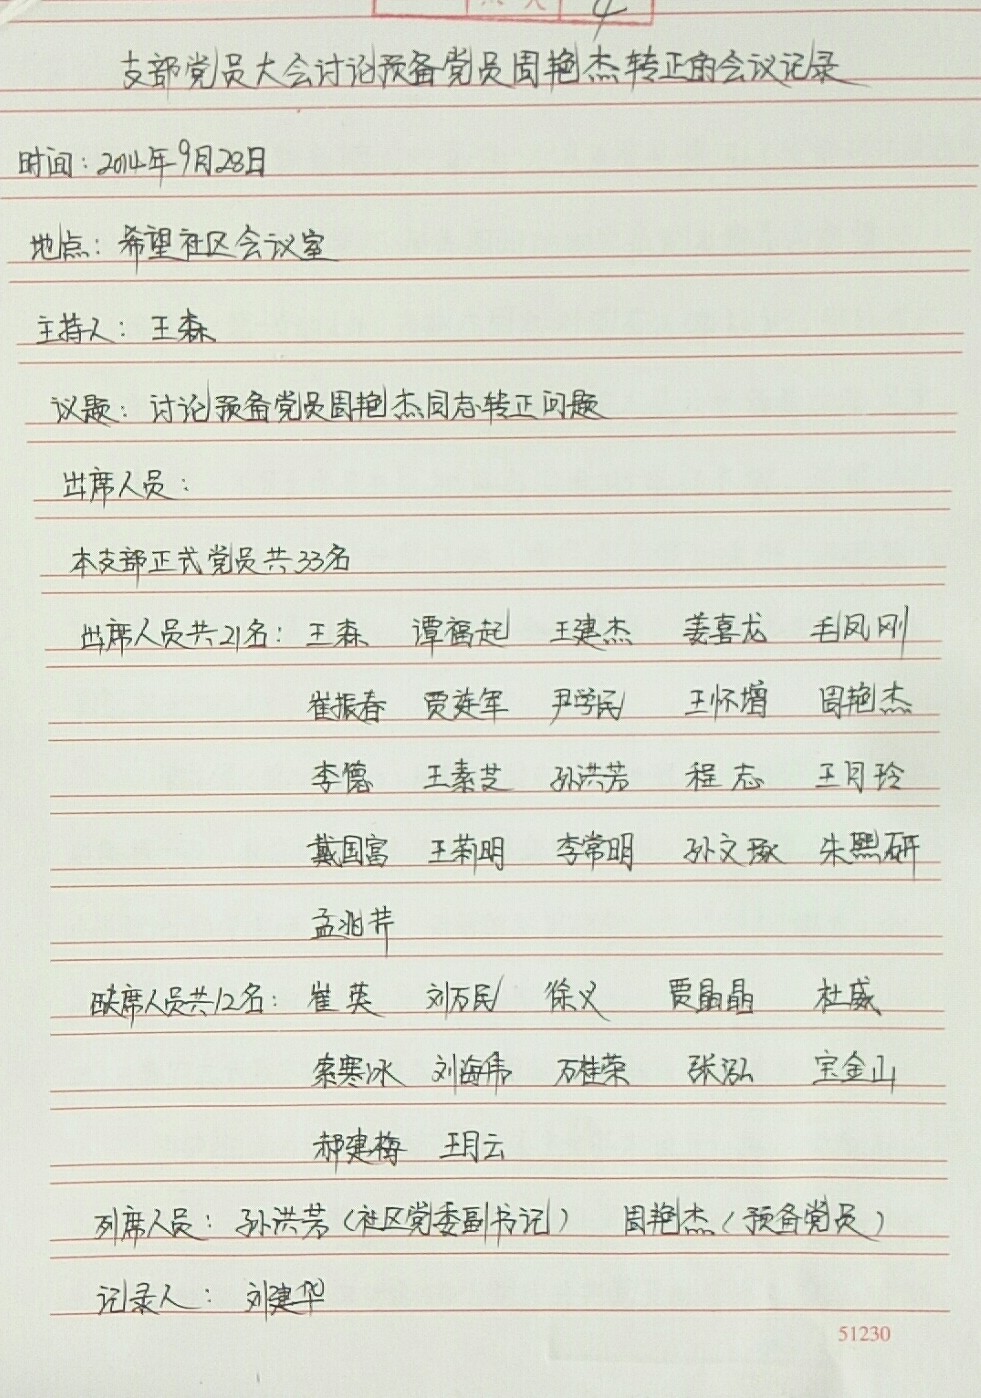 4
支部党员大会讨论预备党员周艳杰转正的会议记录
时间：2014年9月28日
地点：希望社区会议室
主持人：王森
议题：讨论预备党员周艳杰同志转正问题
出席人员：
本支部正式党员共33名
出席人员共21名：王森 谭福起 王建杰 姜喜龙 毛凤刚
崔振春 贾延军 尹学民 王怀增 周艳杰
李德 王素芝 孙洪芳 程志 王月玲
戴国富 王莉明 李常明 孙文琢 朱熙研
孟兆芹
缺席人员共12名：崔英 刘万民 徐义 贾晶晶 杜威
索寒冰 刘海伟 万桂荣 张泓 宝金山
郝建梅 王月云
列席人员：孙洪芳（社区党委副书记） 周艳杰（预备党员）
记录人：刘建华
51230